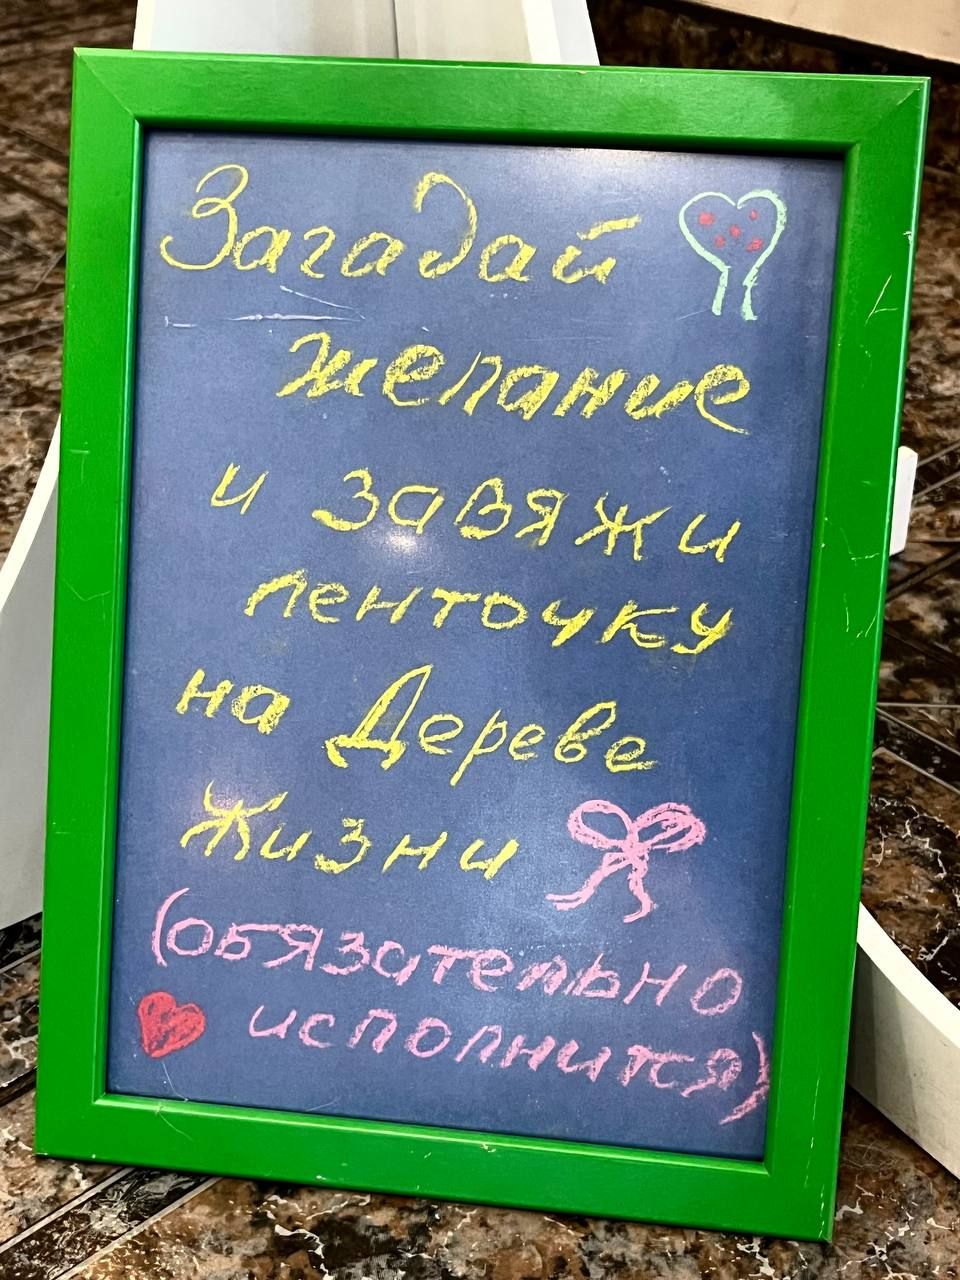 Загадай
желание
и завяжи
ленточку
на Дереве
Жизни
(обязательно
исполнится)